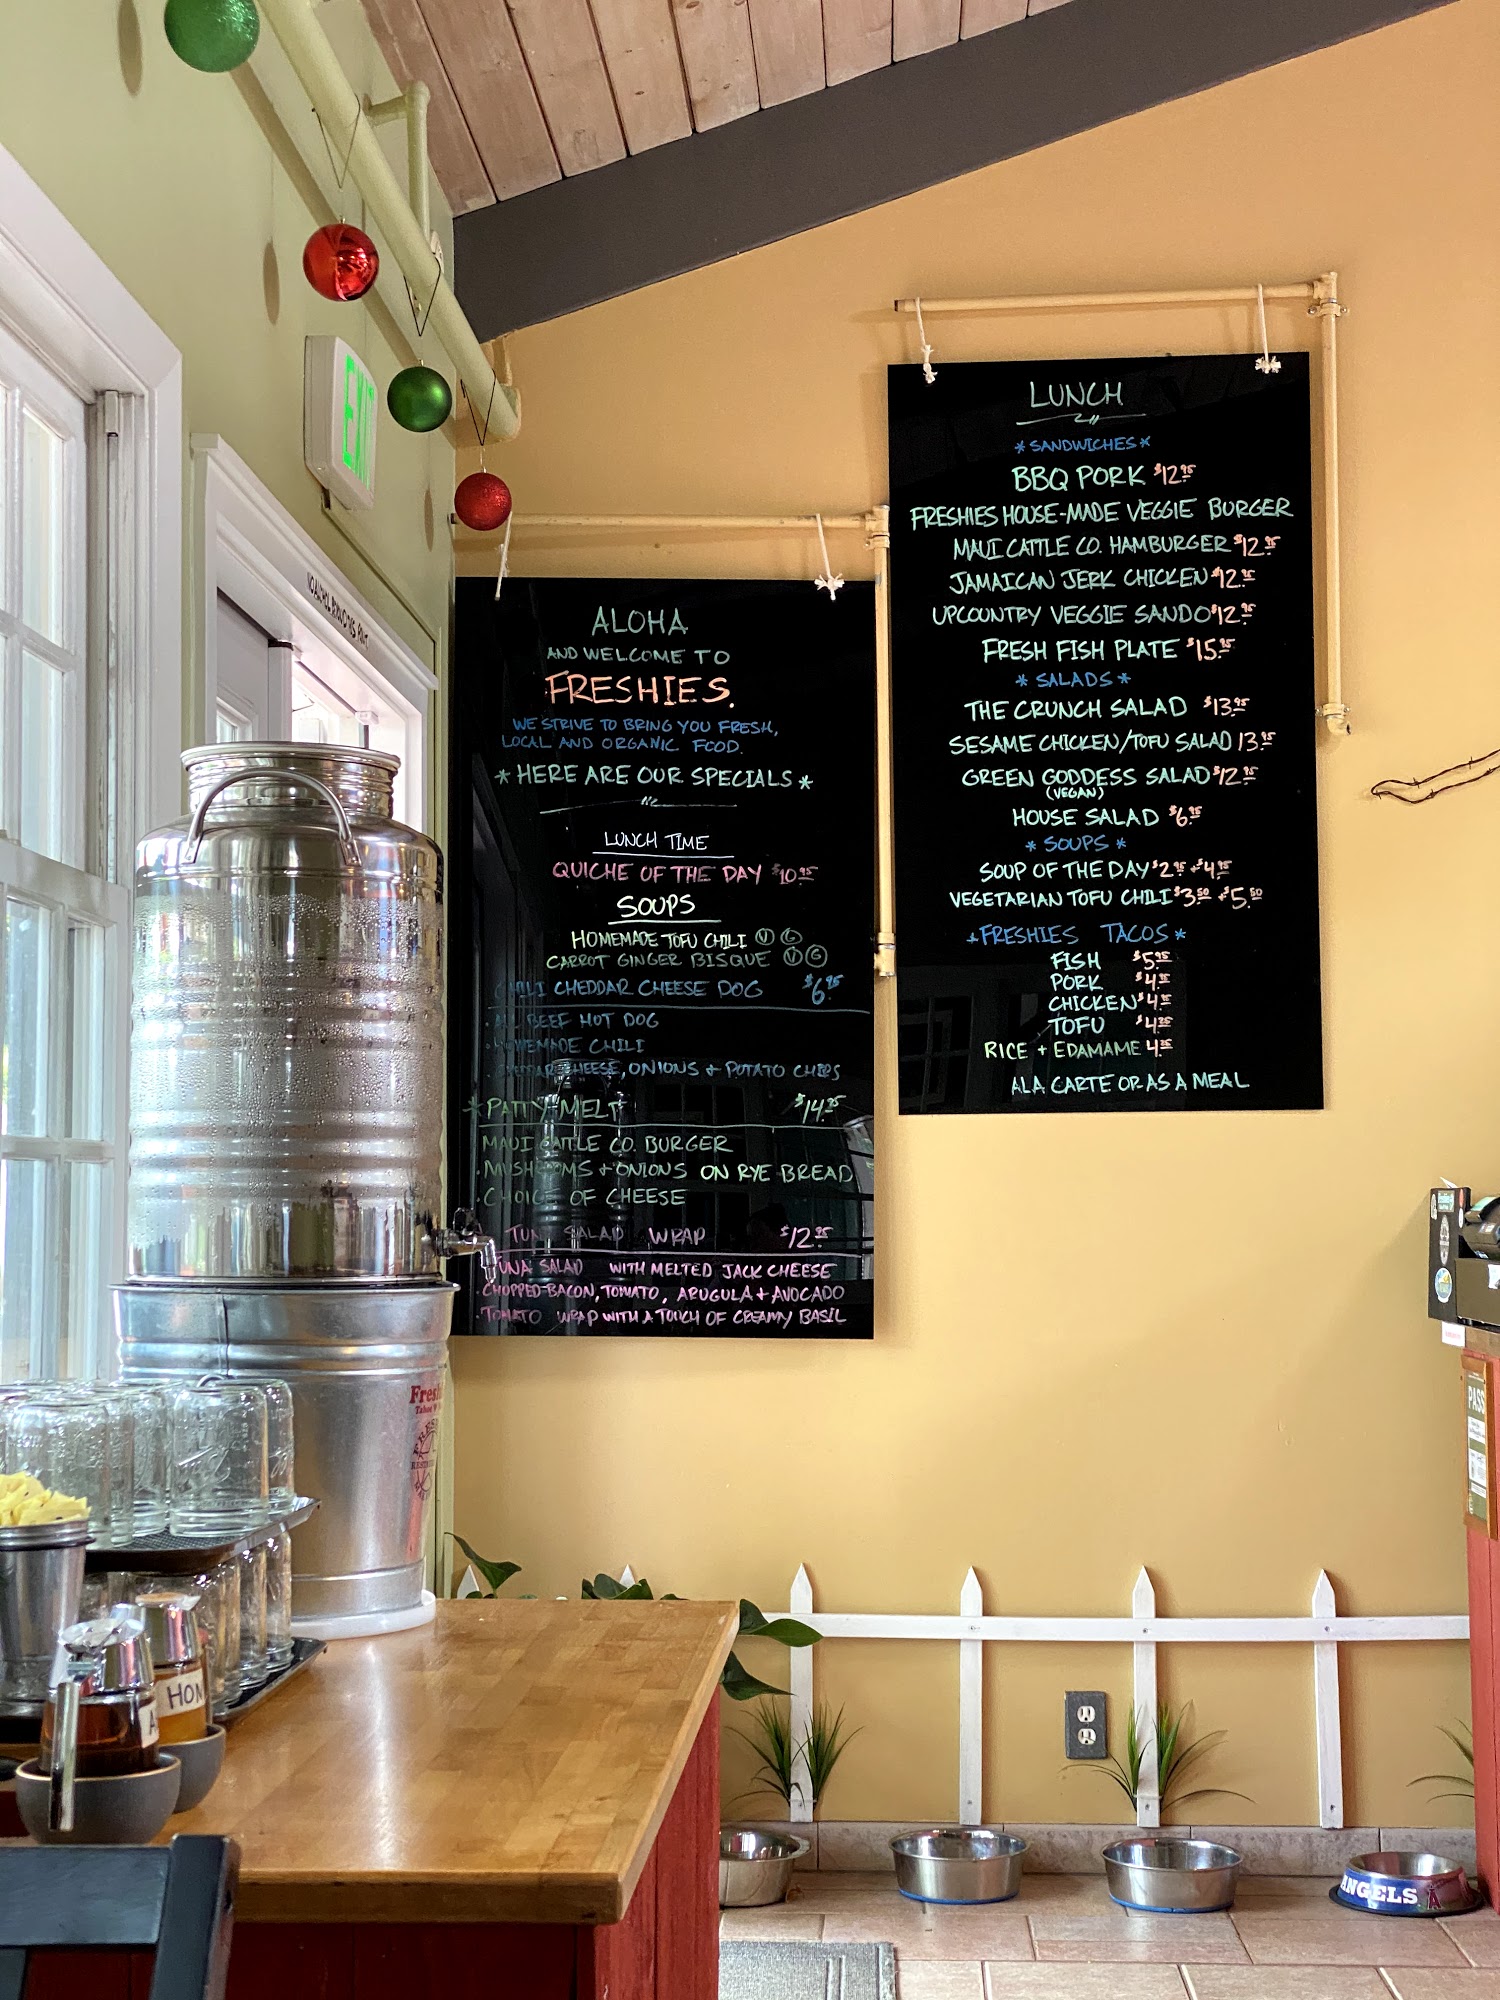 EXIT
ALOHA
AND WELCOME TO
FRESHIES.
WE STRIVE TO BRING YOU FRESH,
LOCAL AND ORGANIC FOOD.
*HERE ARE OUR SPECIALS*
LUNCH TIME
QUICHE OF THE DAY $10.95
SOUPS
HOMEMADE TOFU CHILI V G
CARROT GINGER BISQUE V G
CHILI CHEDDAR CHEESE DOG $6.95
· ALL BEEF HOT DOG
· HOMEMADE CHILI
· CHEDDAR CHEESE, ONIONS + POTATO CHIPS
*PATTY MELT $14.25
MAUI CATTLE CO. BURGER
· MUSHROOMS + ONIONS ON RYE BREAD
· CHOICE OF CHEESE
TUNA SALAD WRAP $12.95
TUNA SALAD WITH MELTED JACK CHEESE
· CHOPPED BACON, TOMATO, ARUGULA + AVOCADO
· TOMATO WRAP WITH A TOUCH OF CREAMY BASIL
LUNCH
*SANDWICHES*
BBQ PORK $12.95
FRESHIES HOUSE-MADE VEGGIE BURGER
MAUI CATTLE CO. HAMBURGER $12.95
JAMAICAN JERK CHICKEN $12.95
UPCOUNTRY VEGGIE SANDO $12.95
FRESH FISH PLATE $15.95
*SALADS*
THE CRUNCH SALAD $13.95
SESAME CHICKEN/TOFU SALAD 13.95
GREEN GODDESS SALAD $12.95
(VEGAN)
HOUSE SALAD $6.95
*SOUPS*
SOUP OF THE DAY $2.95 + $4.95
VEGETARIAN TOFU CHILI $3.50 + $5.50
*FRESHIES TACOS*
FISH $5.95
PORK $4.95
CHICKEN $4.95
TOFU $4.25
RICE + EDAMAME 4.25
ALA CARTE OR AS A MEAL
Fresh
HON
PASS
ANGELS